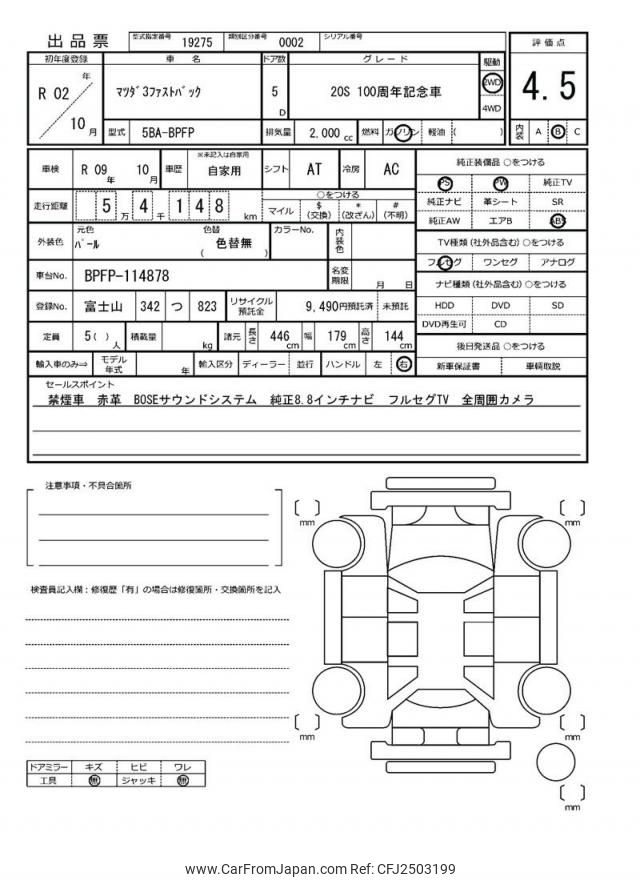 出品票 型式指定番号 19275 類別区分番号 0002 シリアル番号
初年度登録 車 名 ドア数 グレード 駆動 評価点
R 02 年 10 月 マツダ3ファストバック 5 D 20S 100周年記念車 2WD 4WD 4.5
型式 5BA-BPFP 排気量 2,000 cc 燃料 ガソリン 軽油 ( ) 内装 A B C
車検 R 09 年 10 月 車歴 ※未記入は自家用 自家用 シフト AT 冷房 AC
走行距離 5 万 4 千 1 4 8 km ○をつける マイル $ (交換) * (改ざん) # (不明)
外装色 元色 パール 色替 ( 色替無 ) カラーNo. 内装色
車台No. BPFP-114878 名変期限 月 日
登録No. 富士山 342 つ 823 リサイクル預託金 9,490円預託済 未預託
定員 5 ( ) 人 積載量 kg 諸元 長さ 446 cm 幅 179 cm 高さ 144 cm
輸入車のみ⇒ モデル年式 年 輸入区分 ディーラー 並行 ハンドル 左 右
純正装備品 ○をつける
PS PW 純正TV
純正ナビ 革シート SR
純正AW エアB ABS
TV種類 (社外品含む) ○をつける
フルセグ ワンセグ アナログ
ナビ種類 (社外品含む) ○をつける
HDD DVD SD
DVD再生可 CD
後日発送品 ○をつける
新車保証書 車輌取説
セールスポイント
禁煙車 赤革 BOSEサウンドシステム 純正8.8インチナビ フルセグTV 全周囲カメラ
注意事項・不具合箇所
検査員記入欄：修復歴「有」の場合は修復箇所・交換箇所を記入
[ ] mm [ ] mm
[ ] mm [ ] mm
[ ] mm
ドアミラー キズ ヒビ ワレ
工具 無 ジャッキ 無
www.CarFromJapan.com Ref: CFJ2503199